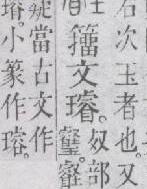 石次玉者也。又
籒文璿。
㕚部
叡
當古文作
璿。小篆作璿。